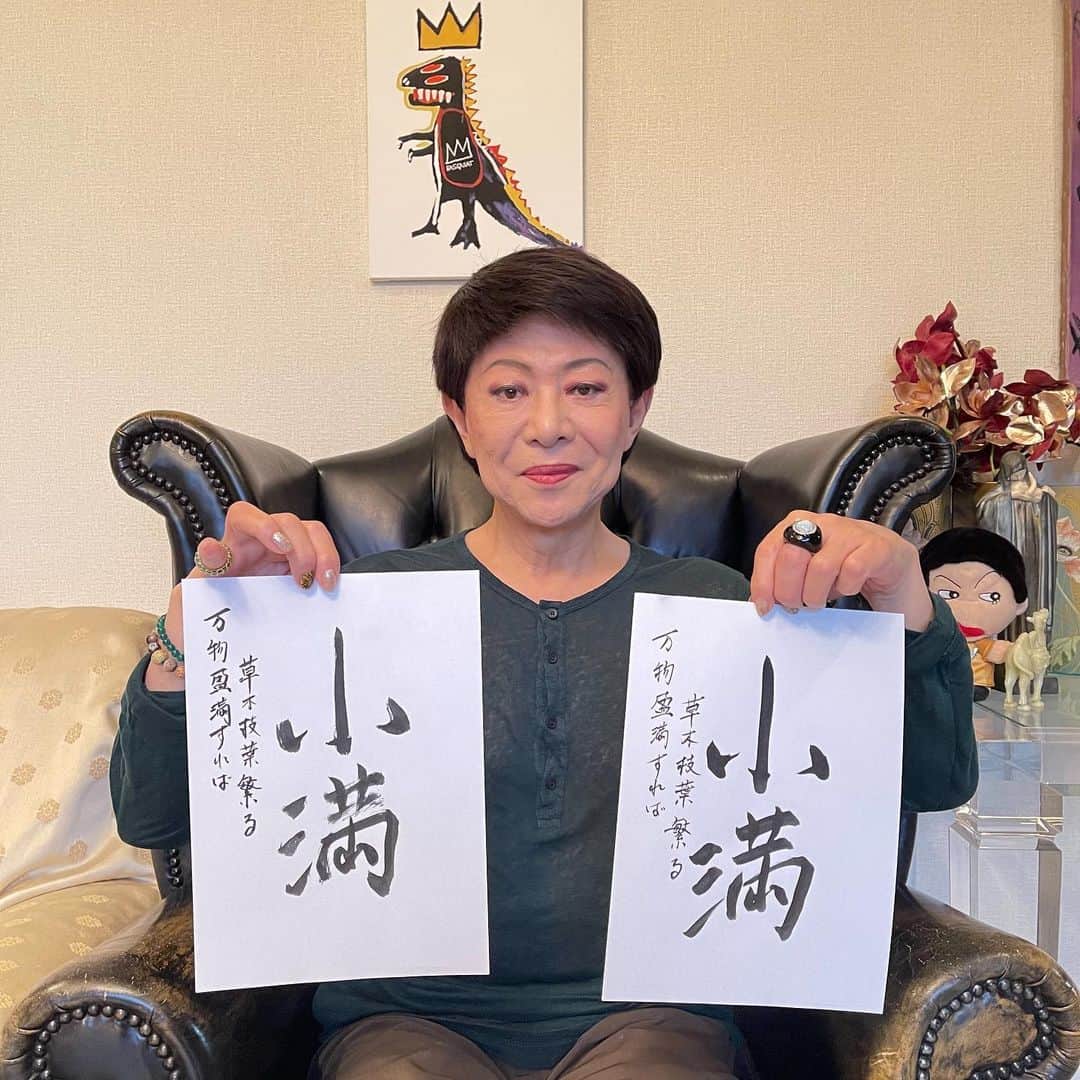 BASQUIAT
小満
万物盈満すれば
草木枝葉繁る
小満
万物盈満すれば
草木枝葉繁る